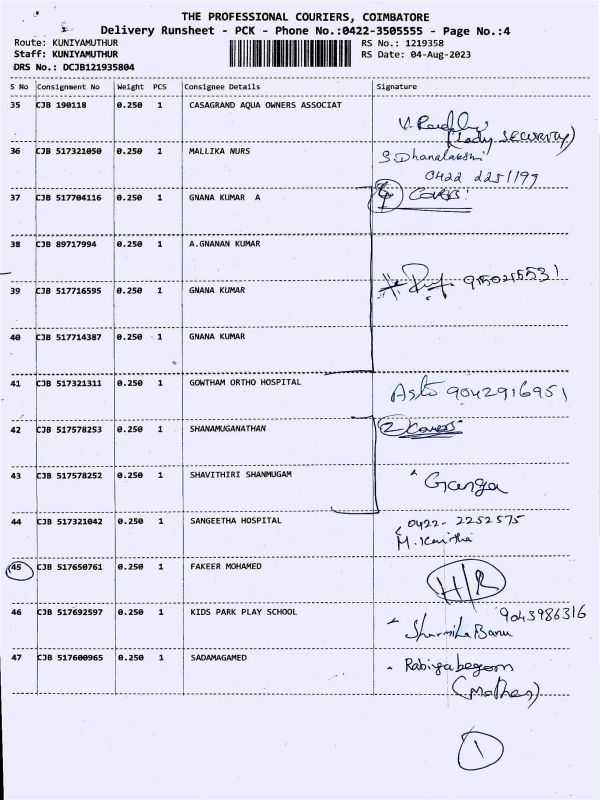 THE PROFESSIONAL COURIERS, COIMBATORE
Delivery Runsheet - PCK - Phone No.:0422-3505555 - Page No.:4
Route: KUNIYAMUTHUR RS No.: 1219358
Staff: KUNIYAMUTHUR RS Date: 04-Aug-2023
DRS No.: DCJB121935804
S No Consignment No Weight PCS Consignee Details Signature
35 CJB 190118 0.250 1 CASAGRAND AQUA OWNERS ASSOCIAT
(Lady SECURITY)
36 CJB 517321050 0.250 1 MALLIKA NURS S.Dhanalakshmi
0422 2251199
37 CJB 517704116 0.250 1 GNANA KUMAR A 4 Covers
38 CJB 89717994 0.250 1 A.GNANAN KUMAR
39 CJB 517716595 0.250 1 GNANA KUMAR
40 CJB 517714387 0.250 1 GNANA KUMAR
41 CJB 517321311 0.250 1 GOWTHAM ORTHO HOSPITAL 9042916951
42 CJB 517578253 0.250 1 SHANAMUGANATHAN 2 Covers
43 CJB 517578252 0.250 1 SHAVITHIRI SHANMUGAM Ganga
44 CJB 517321042 0.250 1 SANGEETHA HOSPITAL 0422-2252575
M. Kavitha
45 CJB 517650761 0.250 1 FAKEER MOHAMED H/R
46 CJB 517692597 0.250 1 KIDS PARK PLAY SCHOOL 9043986316
Sharmila Banu
47 CJB 517600965 0.250 1 SADAMAGAMED Rabiyabegam
(Mother)
1